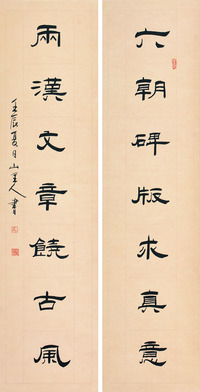 六朝碑版求真意
兩漢文章饒古風
壬辰夏月山里人書